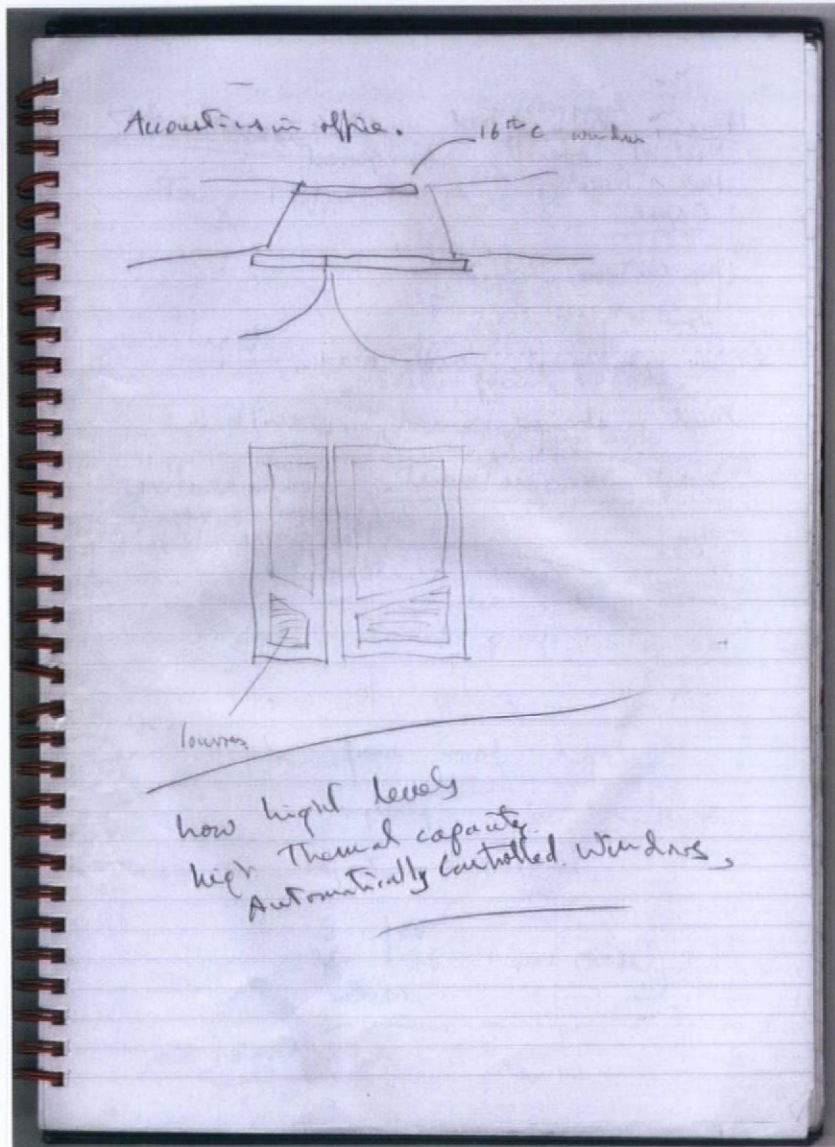 Acoustics in office.
16th C window
louvres.
low light levels
high Thermal capacity.
Automatically Controlled. Windows,